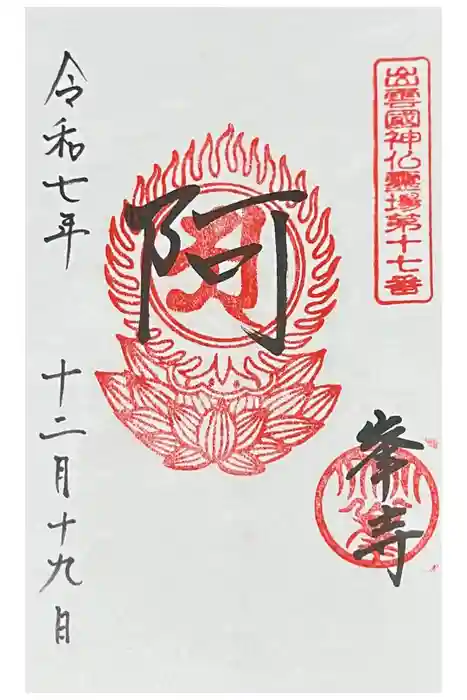 出雲國神仏霊場第十七番
峯寺
阿
令和七年 十二月十九日